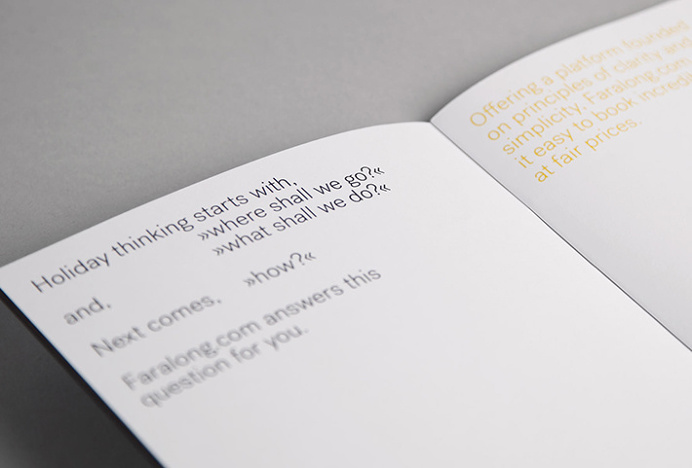 Holiday thinking starts with,
»where shall we go?«
»what shall we do?«
and,
Next comes, »how?«
Faralong.com answers this
question for you.
Offering a platform founded
on principles of clarity and
simplicity, Faralong.com
it easy to book
at fair prices.